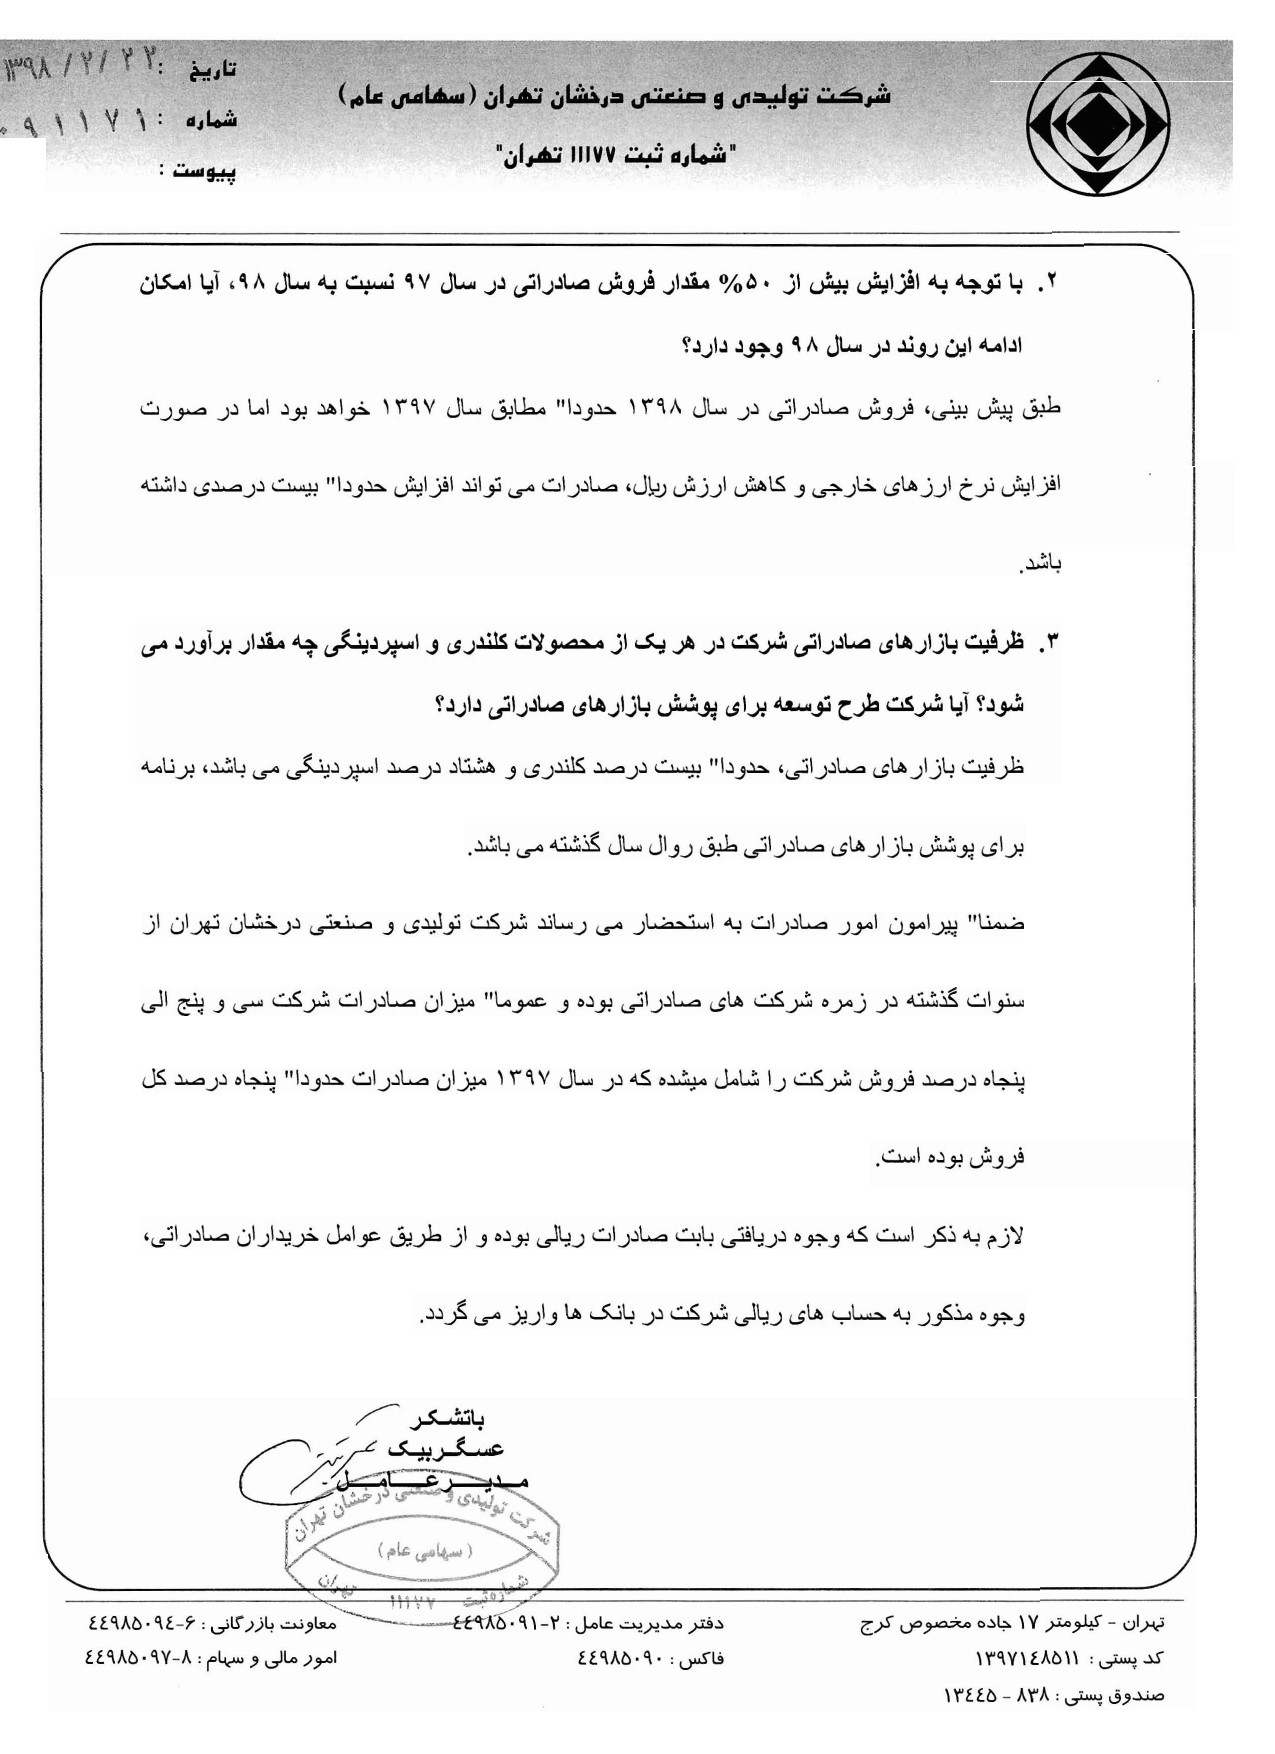 تاریخ : ۱۳۹۸/۲/۲۲
شماره : ۰۹۱۱۷۱
پیوست :
شرکت تولیدی و صنعتی درخشان تهران (سهامی عام)
"شماره ثبت ۱۱۱۷۷ تهران"
۲. با توجه به افزایش بیش از ۵۰% مقدار فروش صادراتی در سال ۹۷ نسبت به سال ۹۸، آیا امکان
ادامه این روند در سال ۹۸ وجود دارد؟
طبق پیش بینی، فروش صادراتی در سال ۱۳۹۸ حدودا" مطابق سال ۱۳۹۷ خواهد بود اما در صورت
افزایش نرخ ارزهای خارجی و کاهش ارزش ریال، صادرات می تواند افزایش حدودا" بیست درصدی داشته
باشد.
۳. ظرفیت بازارهای صادراتی شرکت در هر یک از محصولات کلندری و اسپردینگی چه مقدار برآورد می
شود؟ آیا شرکت طرح توسعه برای پوشش بازارهای صادراتی دارد؟
ظرفیت بازارهای صادراتی، حدودا" بیست درصد کلندری و هشتاد درصد اسپردینگی می باشد، برنامه
برای پوشش بازارهای صادراتی طبق روال سال گذشته می باشد.
ضمنا" پیرامون امور صادرات به استحضار می رساند شرکت تولیدی و صنعتی درخشان تهران از
سنوات گذشته در زمره شرکت های صادراتی بوده و عموما" میزان صادرات شرکت سی و پنج الی
پنجاه درصد فروش شرکت را شامل میشده که در سال ۱۳۹۷ میزان صادرات حدودا" پنجاه درصد کل
فروش بوده است.
لازم به ذکر است که وجوه دریافتی بابت صادرات ریالی بوده و از طریق عوامل خریداران صادراتی،
وجوه مذکور به حساب های ریالی شرکت در بانک ها واریز می گردد.
باتشکر
عسگربیک
مدیرعامل
شرکت تولیدی و صنعتی درخشان تهران
(سهامی عام)
شماره ثبت ۱۱۱۷۷ تهران
تهران - کیلومتر ۱۷ جاده مخصوص کرج
کد پستی : ۱۳۹۷۱٤۸۵۱۱
صندوق پستی : ۸۳۸ - ۱۳٤٤۵
دفتر مدیریت عامل : ۲-٤٤۹۸۵۰۹۱
فاکس : ٤٤۹۸۵۰۹۰
معاونت بازرگانی : ۶-٤٤۹۸۵۰۹٤
امور مالی و سهام : ۸-٤٤۹۸۵۰۹۷